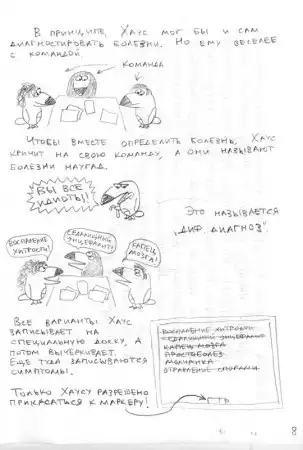 В ПРИНЦИПЕ, ХАУС МОГ БЫ И САМ
ДИАГНОСТИРОВАТЬ БОЛЕЗНИ. НО ЕМУ ВЕСЕЛЕЕ
С КОМАНДОЙ.
КОМАНДА
ЧТОБЫ ВМЕСТЕ ОПРЕДЕЛИТЬ БОЛЕЗНЬ, ХАУС
КРИЧИТ НА СВОЮ КОМАНДУ, А ОНИ НАЗЫВАЮТ
БОЛЕЗНИ НАУГАД.
ВЫ ВСЕ
ИДИОТЫ!
ЭТО НАЗЫВАЕТСЯ
„ДИФ. ДИАГНОЗ".
ВОСПАЛЕНИЕ
ХИТРОСТИ!
СЕДАЛИЩНЫЙ
ЭНЦЕФАЛИТ!
КАПЕЦ
МОЗГА!
ВСЕ ВАРИАНТЫ ХАУС
ЗАПИСЫВАЕТ НА
СПЕЦИАЛЬНУЮ ДОСКУ, А
ПОТОМ ВЫЧЕРКИВАЕТ.
ЕЩЕ ТУДА ЗАПИСЫВАЮТСЯ
СИМПТОМЫ.
ТОЛЬКО ХАУСУ РАЗРЕШЕНО
ПРИКАСАТЬСЯ К МАРКЕРУ!
ВОСПАЛЕНИЕ ХИТРОСТИ
СЕДАЛИЩНЫЙ ЭНЦЕФАЛИТ
КАПЕЦ МОЗГА
ОТРАВЛЕНИЕ СПОРАМИ
8